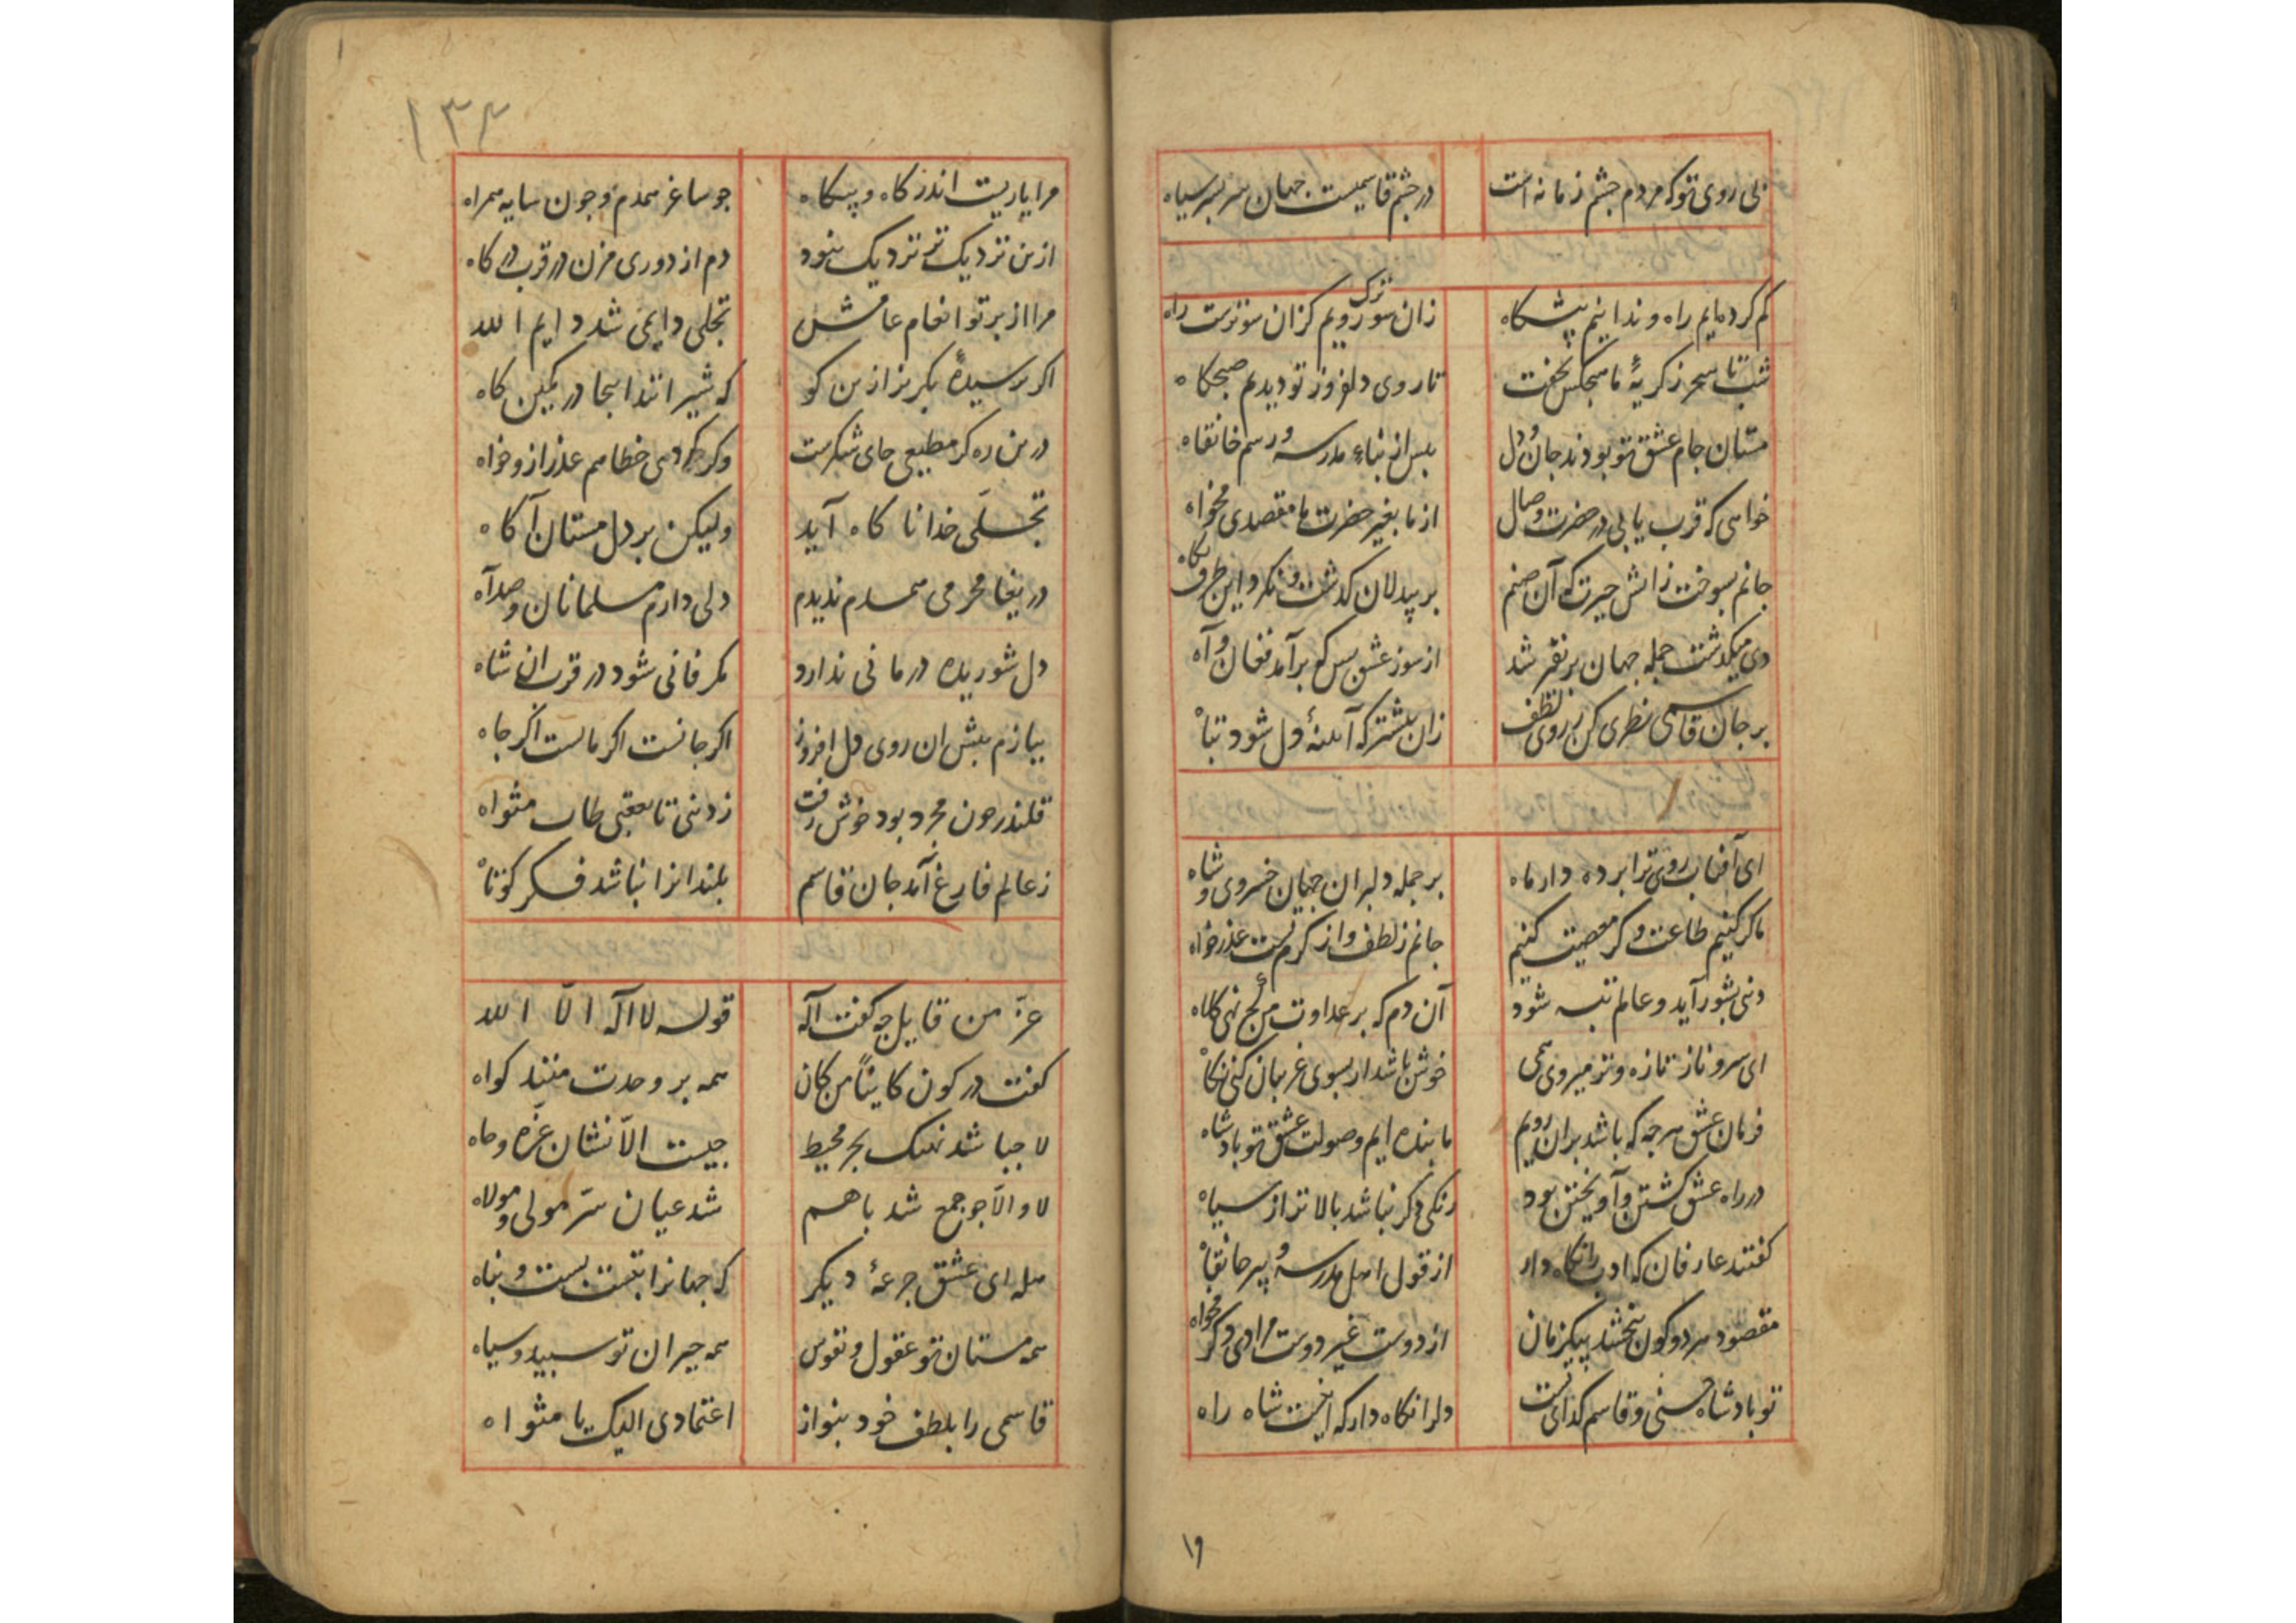 بی روی تو که مردم چشم زمانه است در چشم قاسمیست جهان سر بسر سیاه
کم کرده‌ایم راه و ندانیم پیشکاه زان سو رویم کزان سو تزک تست راه
شب تا سحر ز کریهٔ ما هیچکس نخفت تا روی دلفروز تو دیدیم صبحکاه
مستان جام عشق تو بودند جان و دل پس از بناء مدرسه و رسم خانقاه
خواهی که قرب یابی در حضرت وصال از ما بغیر حضرت ما مقصدی مخواه
جانم بسوخت زاتش حیرت که آن صنم بر بیدلان کذشت و نکرد این طرف نکاه
دی میکذشت جمله جهان پر نفیر شد از سوز عشق بس که برآمد فغان و آه
بر جان قاسمی نظری کن ز روی لطف زان بیشتر که آینهٔ دل شود تباه
ای آفتاب روی ترا برده دار ماه بر جمله دلبران جهان خسروی و شاه
ما کر کنیم طاعت و کر معصیت کنیم جانم ز لطف و از کرم تست عذرخواه
دنیی بشور آید و عالم تبه شود آن دم که بر عداوت من کج نهی کلاه
ای سرو ناز تازه و تر میروی همی خوش باشد ار بسوی غریبان کنی نکاه
فرمان عشق هرچه که باشد بران رویم ما بنده ایم و صولت عشق تو بادشاه
در راه عشق کشتن و آویختن بود رنکی دکر نباشد بالاتر از سیاه
کفتند عارفان که ادب را نکاه دار از قول اهل مدرسه و پیر خانقاه
مقصود هر دو کون ببخشند بیکزمان از دوست غیر دوست مرادی دکر مخواه
تو بادشاه حسنی و قاسم کدای تست دل را نکاه دار که اینست شاه راه
۱۹
۱۳۴
مرا یاریست اندر کاه و بیکاه جو ساغر همدم و جون سایه همراه
ازین نزدیک تر نزدیک نبود دم از دوری مزن در قرب درکاه
مرا از برتو انعام عامش تجلی دایمی شد دایم الله
اکر ترسیدهٔ بکریز ازین کو که شیرانند اینجا در کمین کاه
درین ره کر مطیعی جای شکرست و کر کردی خطا هم عذر ازو خواه
تجلّی خدا ناکاه آید ولیکن بر دل مستان آکاه
دریغا محرمی همدم ندیدم دلی دارم مسلمانان و صد آه
دل شوریده درمانی ندارد مکر فانی شود در قرب آن شاه
ببازم پیش ان روی دل افروز اکر جانست اکر مالست اکر جاه
قلندر جون مجرد بود خوش رفت ز دنیی تا بعقبی طاب مثواه
ز عالم فارغ آمد جان قاسم بلندانرا نباشد فکر کوتاه
عزّ من قایل جه کفت آله قوله لا اله الّا الله
کفت در کون کاینًا من کان همه بر وحدت منند کواه
لا جبا شد نهنک بحر محیط جیست الّا نشان عزّه و جاه
لا و الّا جو جمع شد باهم شد عیان سرّ مولی و مولاه
هله ای عشق جرعهٔ دیکر که جهانرا بتست بست و بناه
همه مستان تو عقول و نفوس همه حیران تو سبید و سیاه
قاسمی را بلطف خود بنواز اعتمادی الیک یا مثواه